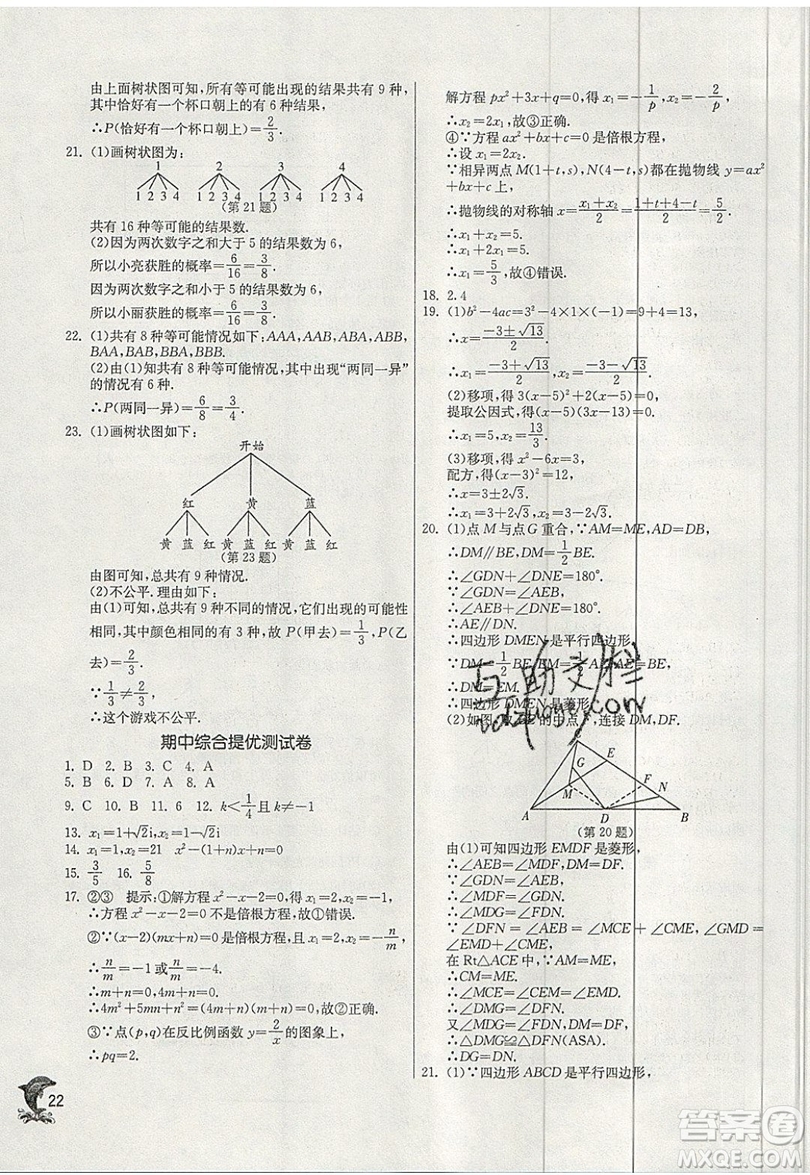 由上面树状图可知,所有等可能出现的结果共有 9 种,
其中恰好有一个杯口朝上的有 6 种结果,
∴P(恰好有一个杯口朝上)=2/3.
21. (1)画树状图为:
1 2 3 4
1 2 3 4 1 2 3 4 1 2 3 4 1 2 3 4
(第 21 题)
共有 16 种等可能的结果数.
(2)因为两次数字之和大于 5 的结果数为 6,
所以小亮获胜的概率=6/16=3/8.
因为两次数字之和小于 5 的结果数为 6,
所以小丽获胜的概率=6/16=3/8.
22. (1)共有 8 种等可能情况如下:AAA,AAB,ABA,ABB,
BAA,BAB,BBA,BBB.
(2)由(1)知共有 8 种等可能情况,其中出现“两同一异”
的情况有 6 种.
∴P(两同一异)=6/8=3/4.
23. (1)画树状图如下:
开始
红 黄 蓝
黄 蓝 红 黄 蓝 红 黄 蓝 红
(第 23 题)
由图可知,总共有 9 种情况.
(2)不公平.理由如下:
由(1)可知,共有 9 种不同的情况,它们出现的可能性
相同,其中颜色相同的有 3 种,故 P(甲去)=1/3,P(乙
去)=2/3.
∵1/3≠2/3,
∴这个游戏不公平.
期中综合提优测试卷
1. D 2. B 3. C 4. A
5. B 6. D 7. A 8. A
9. C 10. B 11. 6 12. k<1/4且 k≠−1
13. x₁=1+√2i,x₂=1−√2i
14. x₁=1,x₂=21 x²−(1+n)x+n=0
15. 3/5 16. 5/8
17. ②③ 提示:①解方程 x²−x−2=0,得 x₁=2,x₂=−1,
∴方程 x²−x−2=0 不是倍根方程,故①错误.
②∵(x−2)(mx+n)=0 是倍根方程,且 x₁=2,x₂=−n/m,
∴n/m=−1 或n/m=−4.
∴m+n=0,4m+n=0.
∴4m²+5mn+n²=(4m+n)(m+n)=0,故②正确.
③∵点(p,q)在反比例函数 y=2/x的图象上,
∴pq=2.
解方程 px²+3x+q=0,得 x₁=−1/p,x₂=−2/p,
∴x₂=2x₁,故③正确.
④∵方程 ax²+bx+c=0 是倍根方程,
∴设 x₁=2x₂.
∵相异两点 M(1+t,s),N(4−t,s)都在抛物线 y=ax²
+bx+c 上,
∴抛物线的对称轴 x=(x₁+x₂)/2=(1+t+4−t)/2=5/2.
∴x₁+x₂=5.
∴x₁+2x₁=5.
∴x₁=5/3,故④错误.
18. 2.4
19. (1)b²−4ac=3²−4×1×(−1)=9+4=13,
∴x=(−3±√13)/2.
∴x₁=(−3+√13)/2,x₂=(−3−√13)/2.
(2)移项,得 3(x−5)²+2(x−5)=0.
提取公因式,得(x−5)(3x−13)=0.
∴x₁=5,x₂=13/3.
(3)移项,得 x²−6x=3.
配方,得(x−3)²=12,
∴x=3±2√3.
∴x₁=3+2√3,x₂=3−2√3.
20. (1)点 M 与点 G 重合,∵AM=ME,AD=DB,
∴DM∥BE,DM=1/2BE.
∴∠GDN+∠DNE=180°.
∵∠GDN=∠AEB,
∴∠AEB+∠DNE=180°.
∴AE∥DN.
∴四边形 DMEN 是平行四边形.
∵DM=1/2BE,EM=1/2AE,AE=BE,
∴DM=EM.
∴四边形 DMEN 是菱形.
(2)如图,取 BE 的中点 F,连接 DM,DF.
C
G E
M F N
A D B
(第 20 题)
由(1)可知四边形 EMDF 是菱形,
∴∠AEB=∠MDF,DM=DF.
∵∠GDN=∠AEB,
∴∠MDF=∠GDN.
∴∠MDG=∠FDN.
∵∠DFN=∠AEB=∠MCE+∠CME,∠GMD=
∠EMD+∠CME,
在 Rt△ACE 中,∵AM=ME,
∴CM=ME.
∴∠MCE=∠CEM=∠EMD.
∴∠DMG=∠DFN.
又∠MDG=∠FDN,
∴△DMG≌△DFN(ASA).
∴DG=DN.
21. (1)∵四边形 ABCD 是平行四边形,
22
答案圈
MXQE.COM